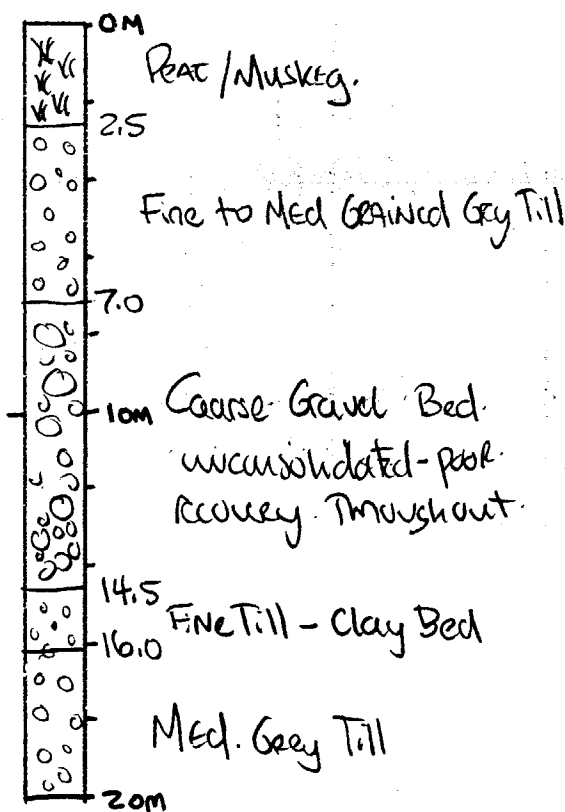 0M
Peat/Muskeg.
2.5
Fine to Med Grained Grey Till
7.0
10M
Coarse Gravel Bed.
unconsolidated-poor.
recovery. Throughout.
14.5
Fine Till - Clay Bed
16.0
Med. Grey Till
20M